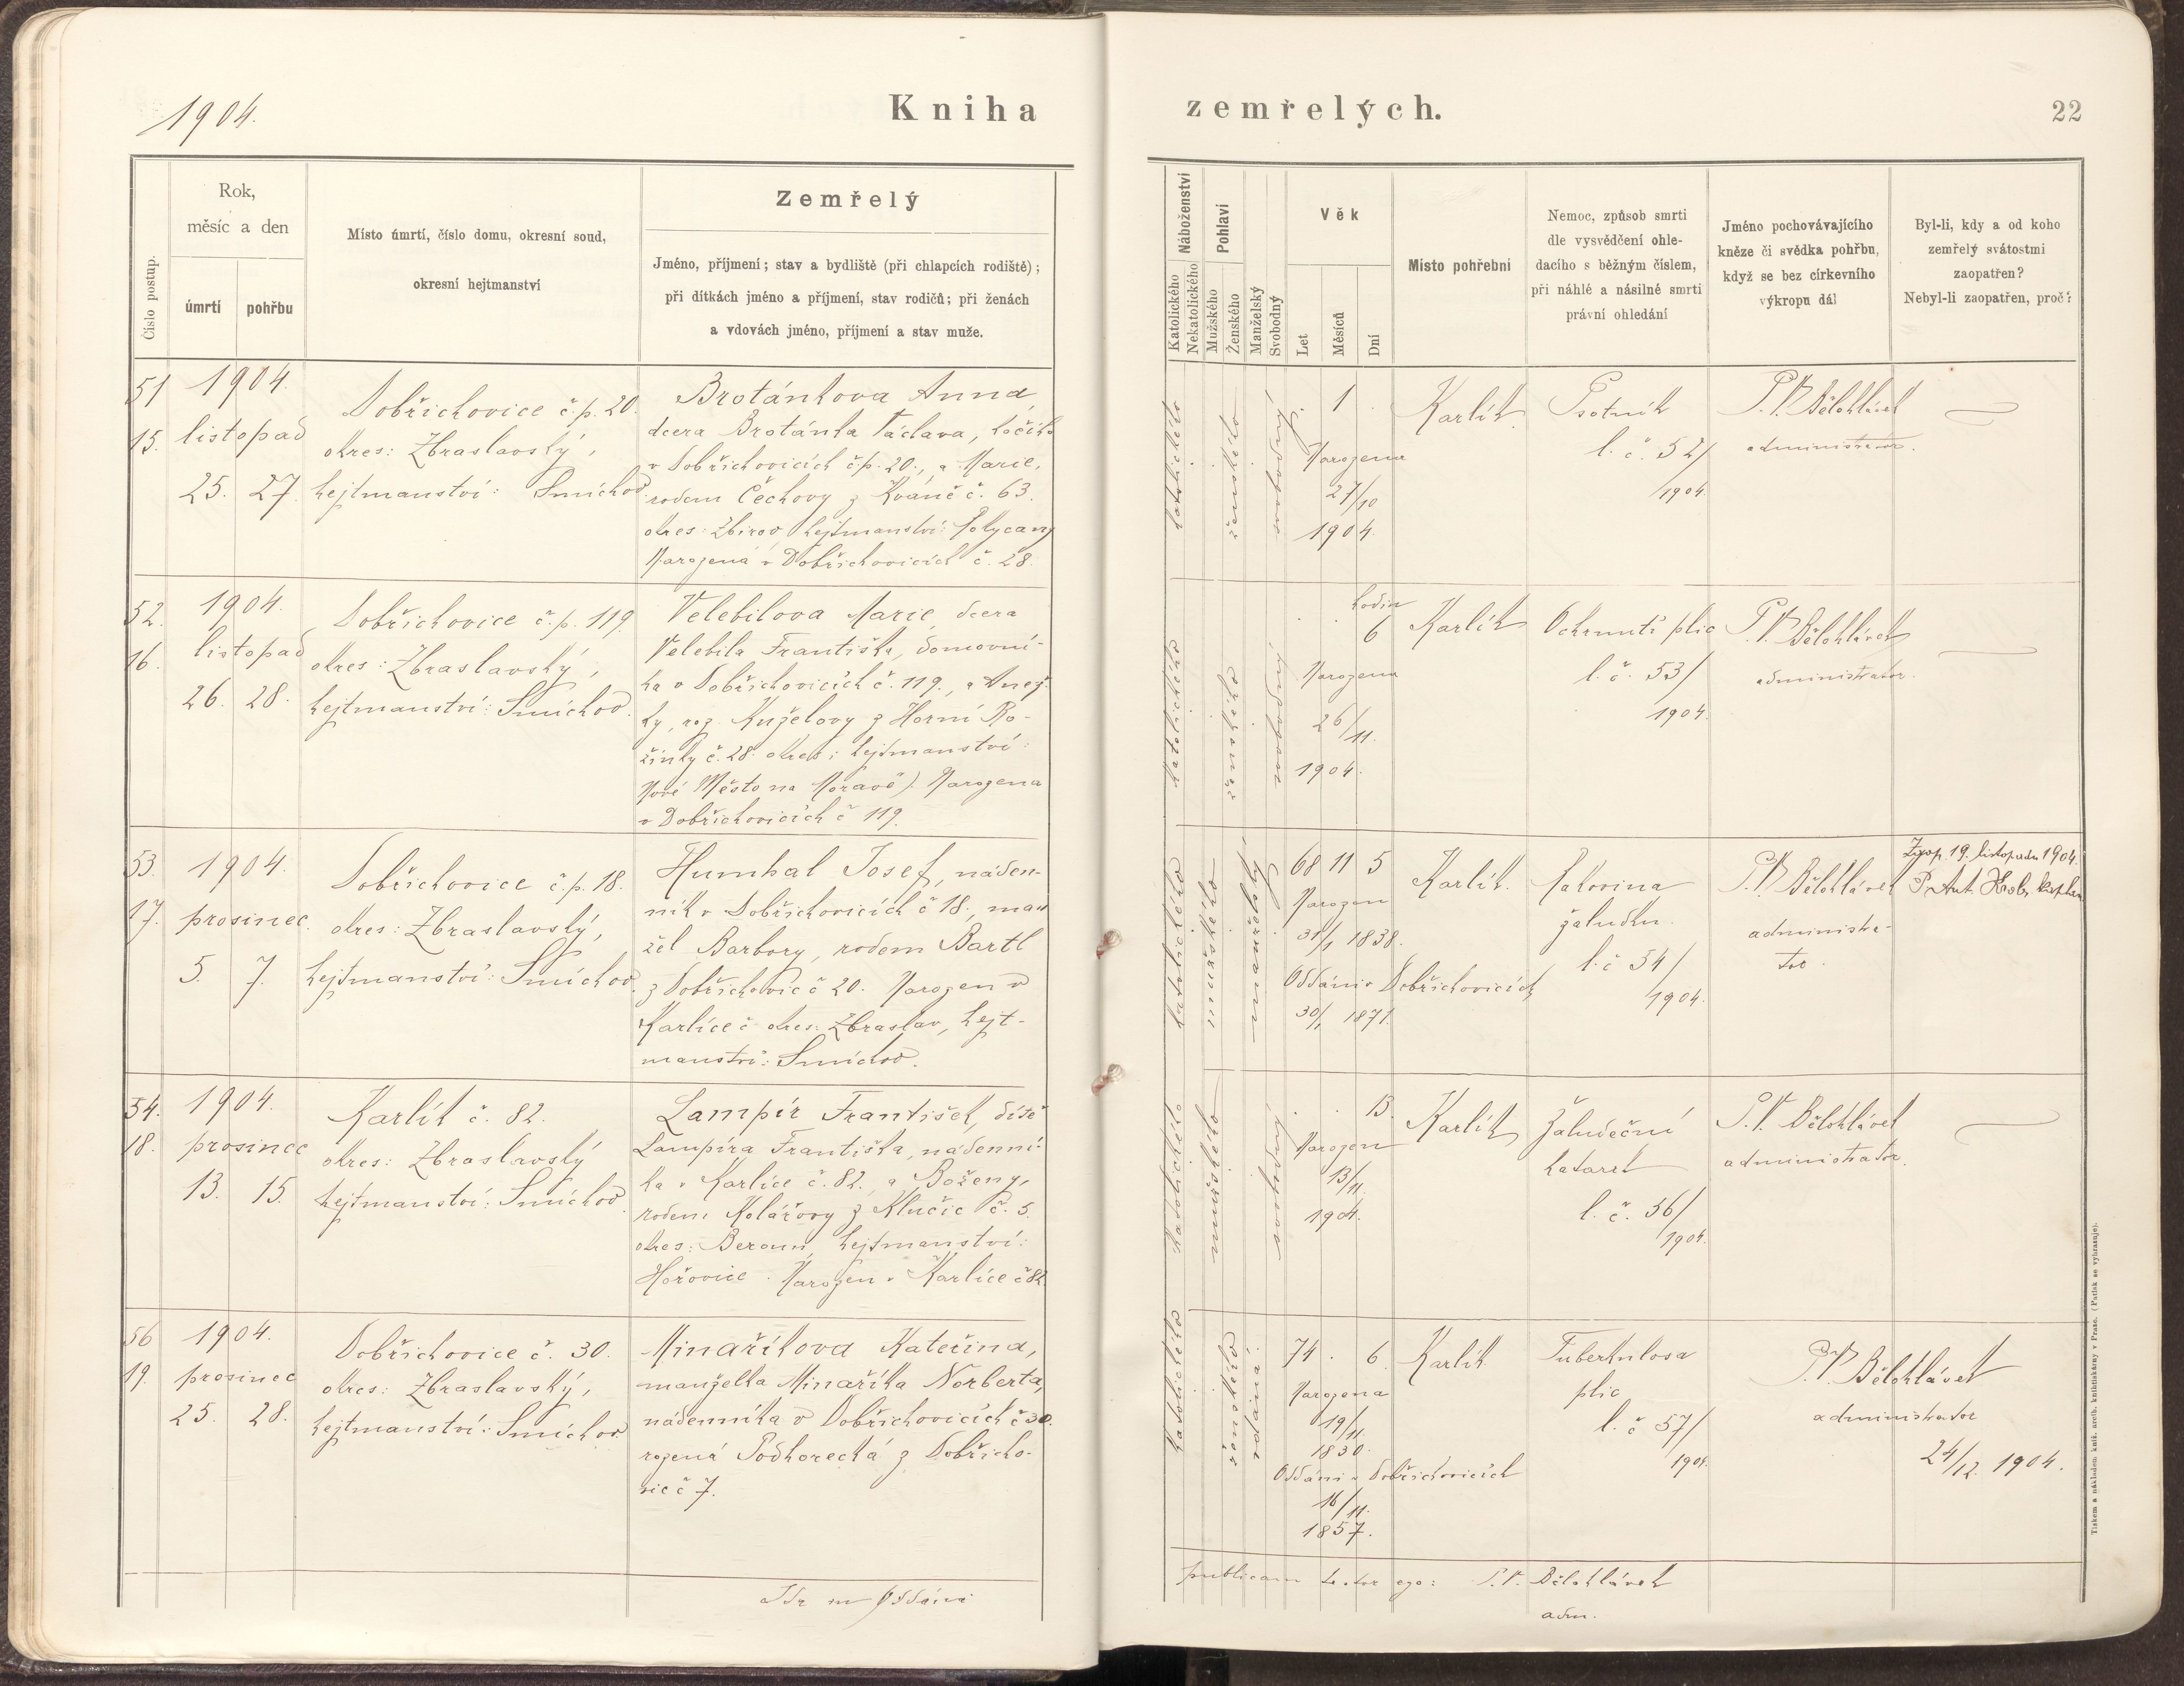 1904.
Kniha zemřelých.
22
Číslo postup.
Rok,
měsíc a den
úmrtí
pohřbu
Místo úmrtí, číslo domu, okresní soud,
okresní hejtmanství
Zemřelý
Jméno, příjmení; stav a bydliště (při chlapcích rodiště);
při dítkách jméno a příjmení, stav rodičů; při ženách
a vdovách jméno, příjmení a stav muže.
Náboženství
Katolického
Nekatolického
Pohlaví
Mužského
Ženského
Manželský
Svobodný
Věk
Let
Měsíců
Dní
Místo pohřební
Nemoc, způsob smrti
dle vysvědčení ohle-
dacího s běžným číslem,
při náhlé a násilné smrti
právní ohledání
Jméno pochovávajícího
kněze či svědka pohřbu,
když se bez církevního
výkropu dál
Byl-li, kdy a od koho
zemřelý svátostmi
zaopatřen?
Nebyl-li zaopatřen, proč?
51
15.
1904.
listopad
25. 27.
Dobřichovice č. p. 20.
okres: Zbraslavský,
hejtmanství: Smíchov
Brotánkova Anna,
dcera Brotánka Václava, kočího
v Dobřichovicích čp. 20., a Marie,
rodem Čechovy z Kváně č. 63.
okres: Zbirov, hejtmanství: Rokycany
Narozená v Dobřichovicích č. 28.
katolického
ženského
svobodný
1
Narozena
27/10
1904.
Karlík
Psotník
l. č. 52/
1904.
P. V. Bělohlávek
administrator.
52.
16.
1904.
listopad
26. 28.
Dobřichovice č. p. 119.
okres: Zbraslavský,
hejtmanství: Smíchov.
Velebilova Marie, dcera
Velebila Františka, domovní-
ka v Dobřichovicích č. 119., a Anež-
ky, roz. Kuželovy z Horní Ro-
žínky č. 28. okres: hejtmanství:
Nové Město na Moravě). Narozena
v Dobřichovicích č 119.
katolického
ženského
svobodný
hodin
6
Narozena
26/11.
1904.
Karlík
Ochrnutí plic
l. č. 53/
1904.
P. V. Bělohlávek
administrator.
53.
17.
1904.
prosinec.
5. 7.
Dobřichovice č. p. 18.
okres: Zbraslavský,
hejtmanství: Smíchov.
Humhal Josef, náden-
ník v Dobřichovicích č 18., man-
žel Barbory, rodem Bartl
z Dobřichovic č 20. Narozen v
Karlíce č okres: Zbraslav, hejt-
manství: Smíchov.
katolického
mužského
manželský
68 11 5
Narozen
31/1 1838.
Oddáni v Dobřichovicích
30/1 1871.
Karlík.
Rakovina
žaludku.
l. č 54/
1904.
P. V. Bělohlávek
administra-
tor.
Zaop. 19. listopadu 1904.
P. Ant. Hob, kaplan
54.
18.
1904.
prosinec
13. 15.
Karlík č. 82.
okres: Zbraslavský
hejtmanství: Smíchov.
Lampír František, dítě
Lampíra Františka, nádenní-
ka v Karlíce č. 82., a Boženy,
rodem Kolářovy z Klučic č. 5.
okres: Beroun, hejtmanství:
Hořovice. Narozen v Karlíce č 82.
katolického
mužského
svobodný
13.
Narozen
13/11.
1904.
Karlík
Žaludeční
katarrh
l. č. 56/
1904.
P. V. Bělohlávek
administrator.
56
19.
1904.
prosinec
25. 28.
Dobřichovice č. 30.
okres: Zbraslavský,
hejtmanství: Smíchov
Minaříkova Kateřina,
manželka Minaříka Norberta,
nádenníka v Dobřichovicích č 30.
rozená Podhorecká z Dobřicho-
vic č 7.
katolického
ženského
vdaná
74. 6
Narozena
19/11.
1830.
Oddáni v Dobřichovicích
16/11.
1857.
Karlík
Tuberkulosa
plic
l. č 57/
1904.
P. V. Bělohlávek
administrator
24/12. 1904.
publicam testor ego: P. V. Bělohlávek
adm.
Tiskem a nákladem kníž. arcib. knihtiskárny v Praze. (Patisk se vyhrazuje).